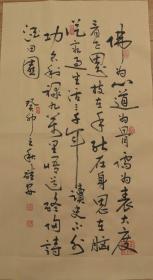 佛为心道为骨儒为表大度
看世界技在手能在身思在脑
从容过生活三千年读史不外
功名利禄九万里悟道终归诗
酒田园
癸卯之秋